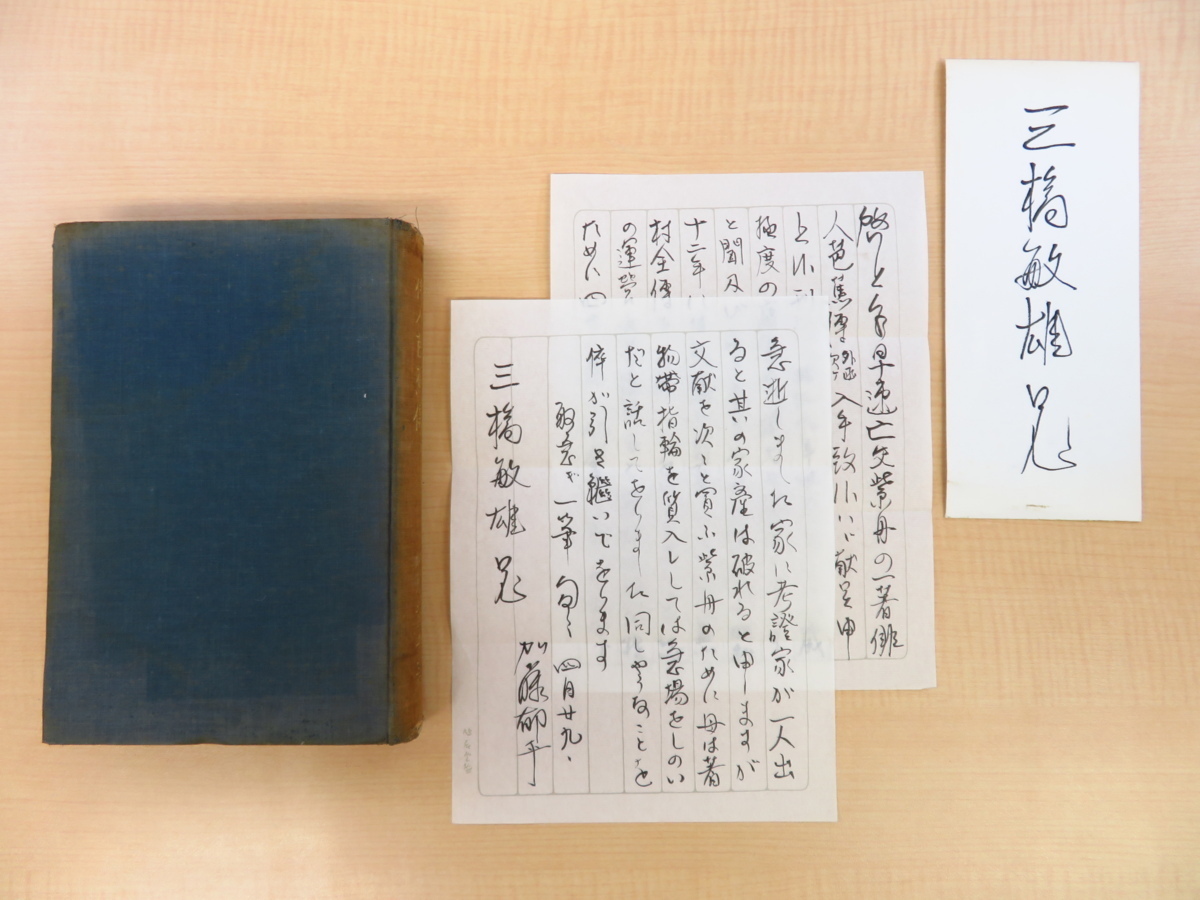 三橋敏雄兄
早速亡父紫丹の一著俳
人芭蕉傳
入手致
献呈申
極度の
と聞及
十二年
村全傳
の運営
ために四
急逝しました家に考證家が一人出
ると其の家産は破れると申しますが
文献を次々と買ふ紫丹のために母は著
物帯指輪を質入しては急場をしのい
だと話してをりました同じやうなことを
倅が引き継いでをります
取急ぎ一筆 匆々 四月廿九、
加藤郁乎
三橋敏雄兄